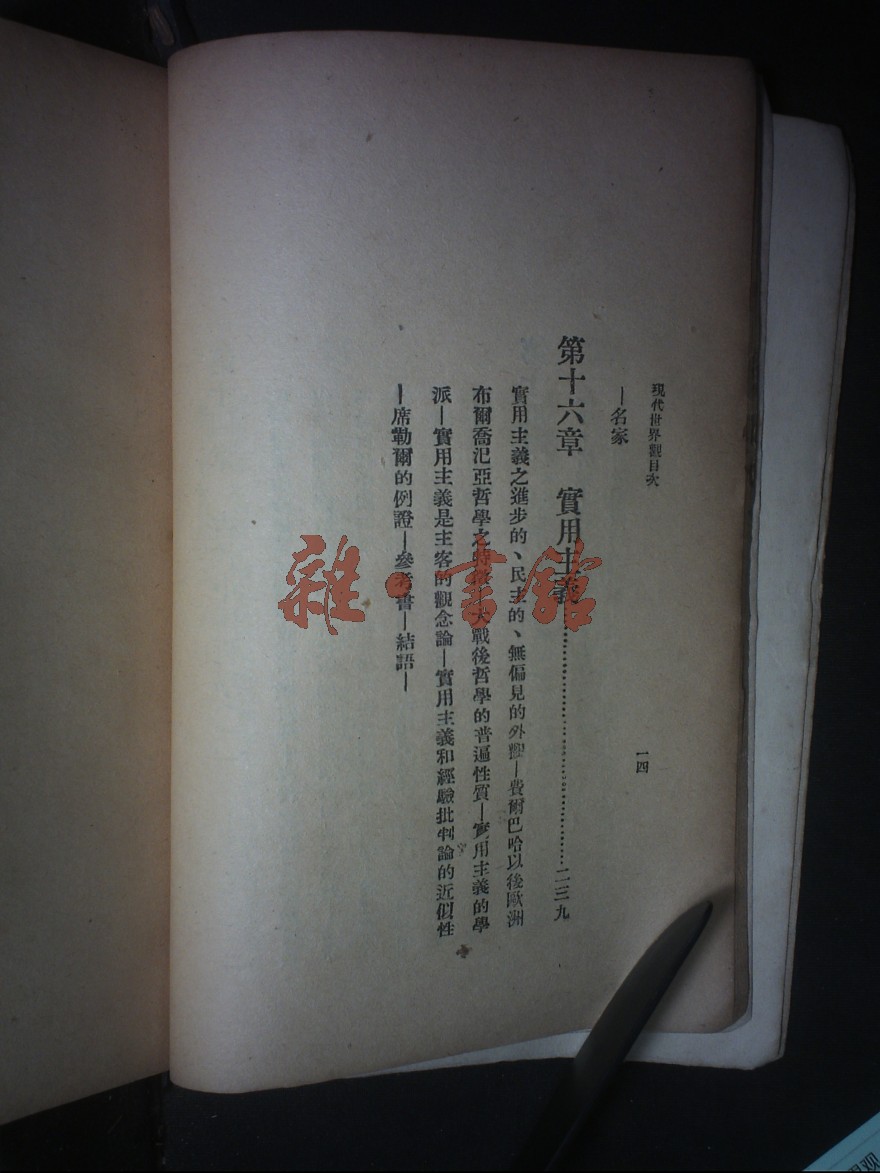 現代世界觀目次
一四
—名家
第十六章　實用主義……………………二三九
實用主義之進步的、民主的、無偏見的外觀—費爾巴哈以後歐洲
布爾喬汜亞哲學之特徵—大戰後哲學的普遍性質—實用主義的學
派—實用主義是主客的觀念論—實用主義和經驗批判論的近似性
—席勒爾的例證—參考書—結語—
雜·書館